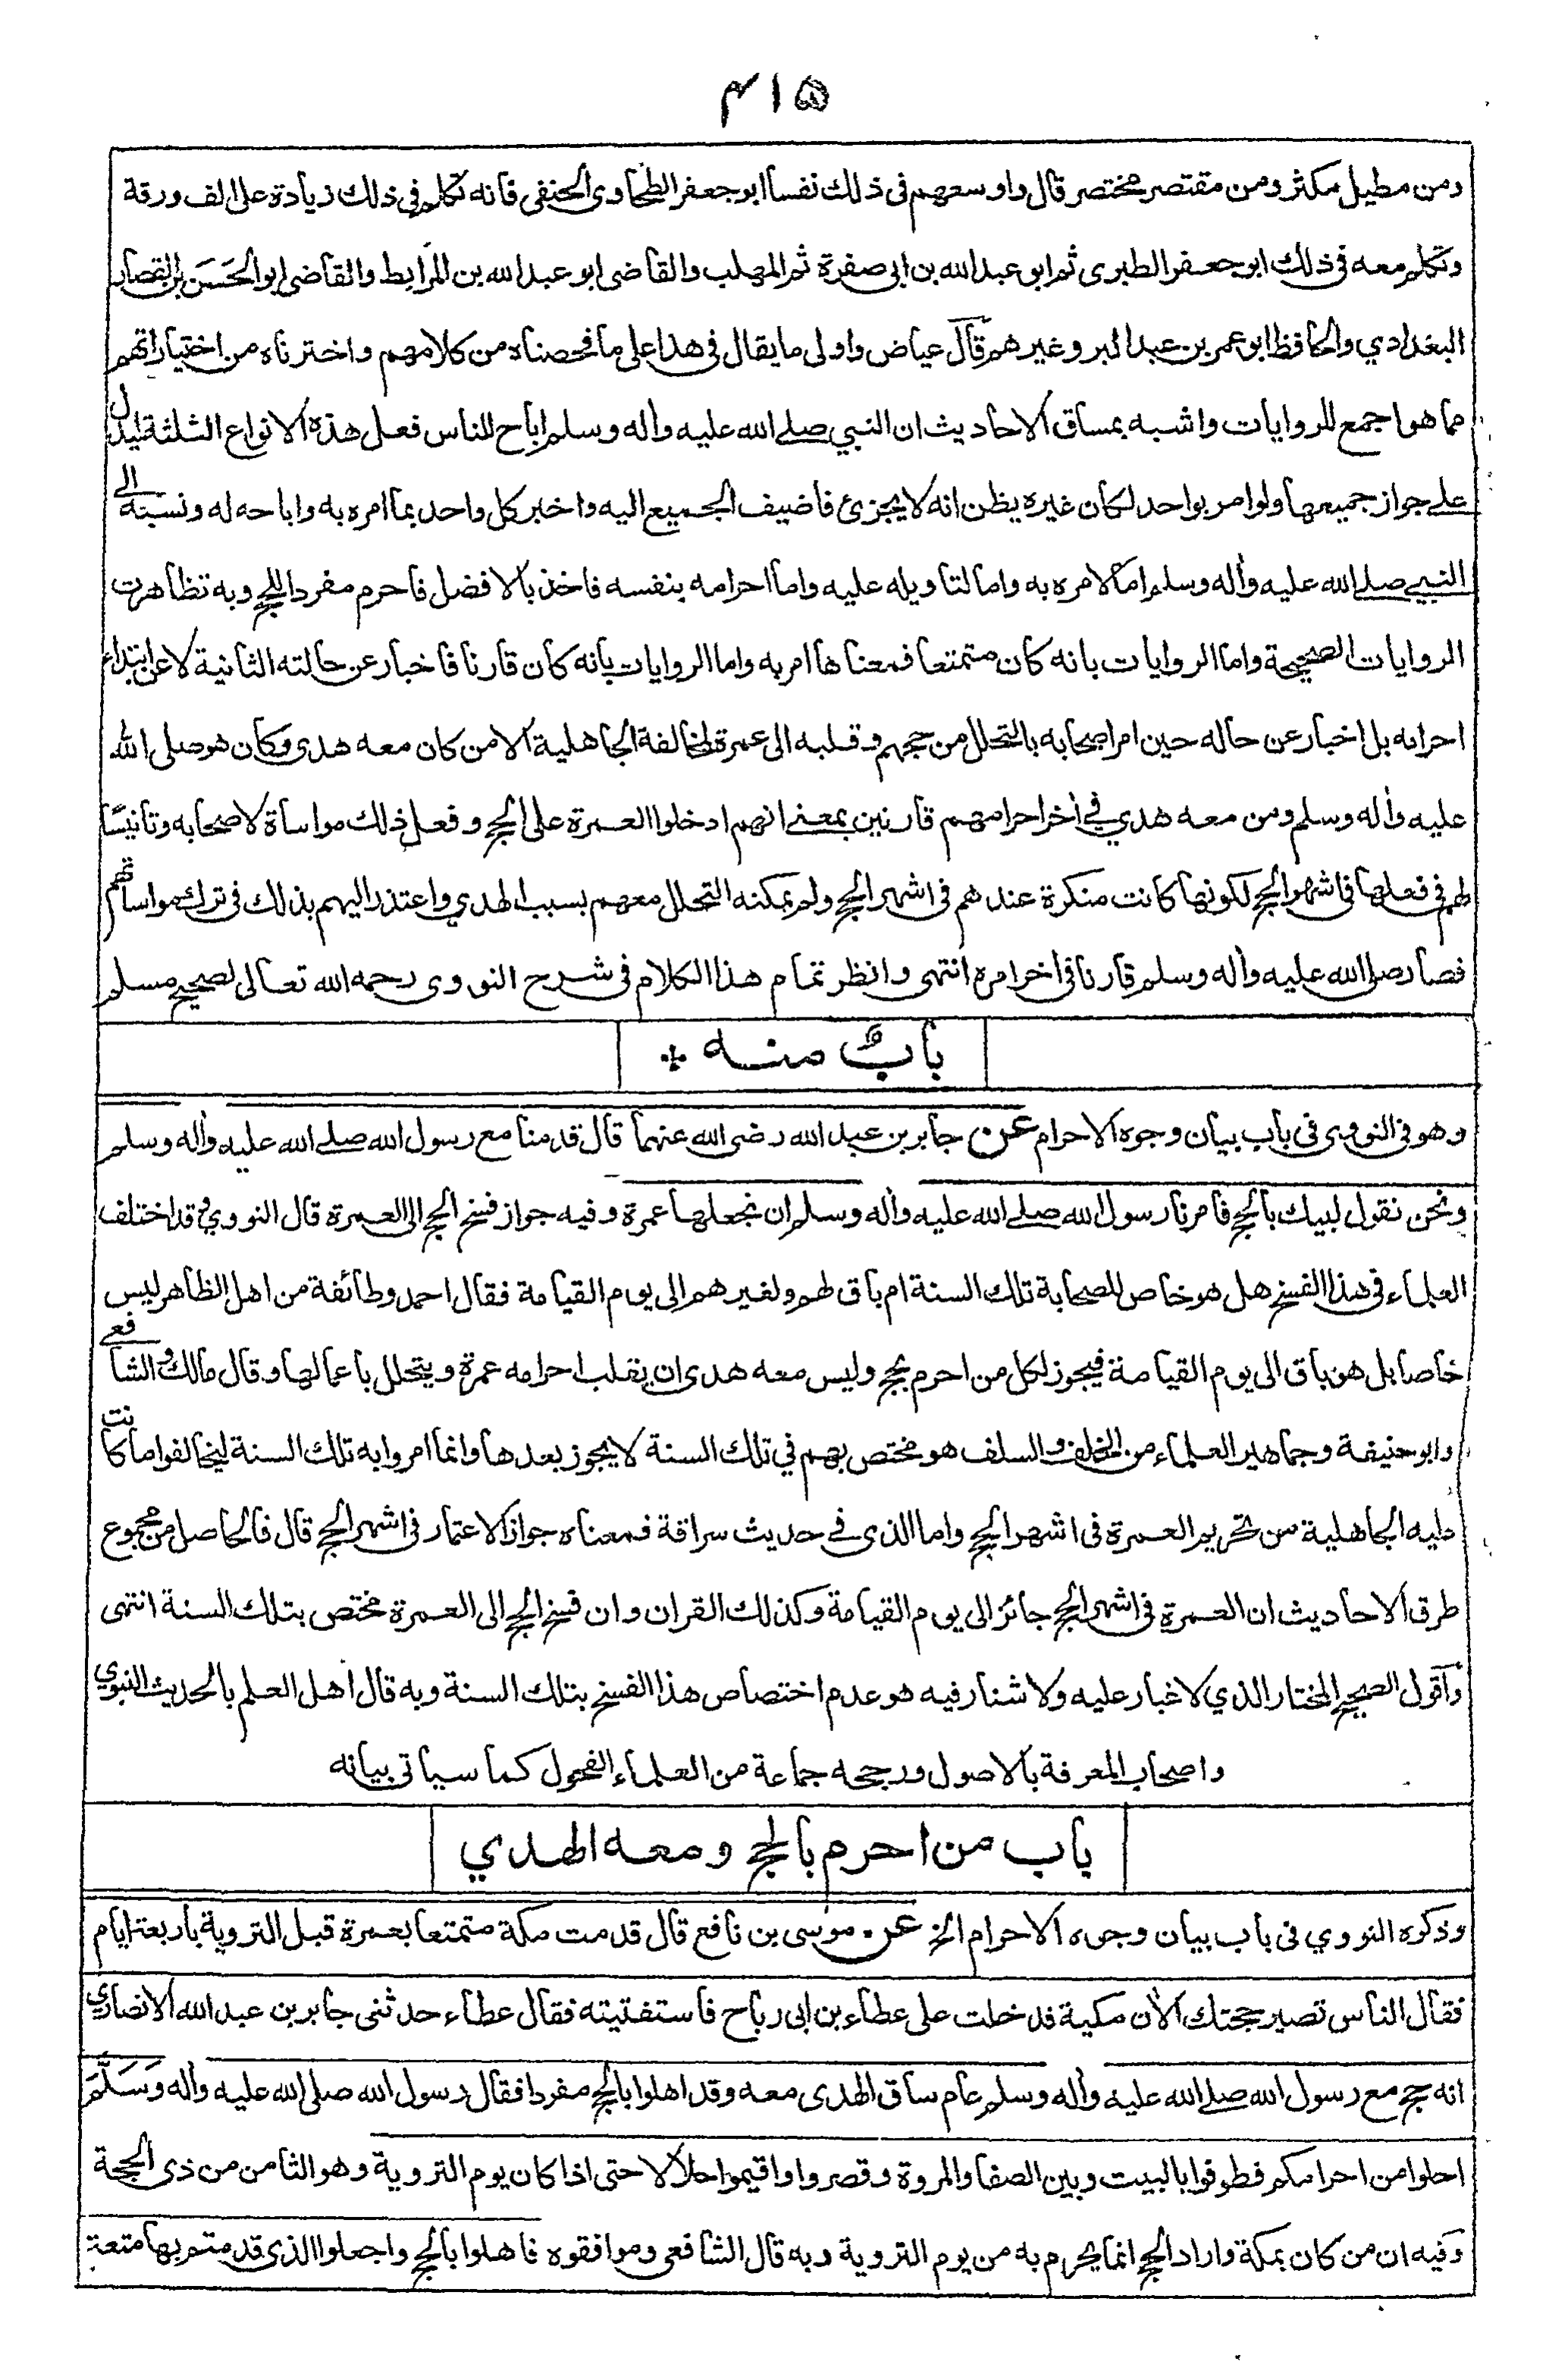 ۴۱۵
ومن مطيل مكثر ومن مقتصر مختصر قال واوسعهم في ذلك نفسا ابو جعفر الطحاوى الحنفى فانه تكلم في ذلك زيادة على الف ورقة
وتكلم معه في ذلك ابو جعفر الطبرى ثم ابو عبد الله بن ابى صفرة ثم المهلب والقاضى ابو عبد الله بن المرابط والقاضى ابو الحَسَن بن القصار
البغدادي والحافظ ابو عمر بن عبد البر وغيرهم قال عياض واولى ما يقال في هذا على ما فحصناه من كلامهم واخترناه من اختياراتهم
مما هو اجمع للروايات واشبه بمساق الاحاديث ان النبي صلى الله عليه واٰله وسلم اباح للناس فعل هذه الانواع الثلثة ليدل
على جواز جميعها ولو امر بواحد لكان غيره يظن انه لا يجزئ فاضيف الجميع اليه واخبر كل واحد بما امره به واباحه له ونسبته الى
النبي صلى الله عليه واٰله وسلم اما لامره به واما لتاويله عليه واما احرامه بنفسه فاخذ بالافضل فاحرم مفردا للحج وبه تظاهرت
الروايات الصحيحة واما الروايات بانه كان متمتعا فمعناها امر به واما الروايات بانه كان قارنا فاخبار عن حالته الثانية لا عن ابتداء
احرامه بل اخبار عن حاله حين امر اصحابه بالتحلل من حجهم وقلبه الى عمرة لمخالفة الجاهلية الا من كان معه هدى وكان هو صلى الله
عليه واٰله وسلم ومن معه هدي في اٰخر احرامهم قارنين بمعنى انهم ادخلوا العمرة على الحج وفعل ذلك مواساة لاصحابه وتانيسًا
لهم في فعلها في اشهر الحج لكونها كانت منكرة عندهم في اشهر الحج ولم يمكنه التحلل معهم بسبب الهدي واعتذر اليهم بذلك في ترك مواساتهم
فصار صلى الله عليه واٰله وسلم قارنا في اٰخر امره انتهى وانظر تمام هذا الكلام في شرح النووى رحمه الله تعالى لصحيح مسلم
بابٌ منه
وهو في النووى فى باب بيان وجوه الاحرام عن جابر بن عبد الله رضى الله عنهما قال قدمنا مع رسول الله صلى الله عليه واٰله وسلم
ونحن نقول لبيك بالحج فامرنا رسول الله صلى الله عليه واٰله وسلم ان نجعلها عمرة وفيه جواز فسخ الحج الى العمرة قال النووي وقد اختلف
العلماء في هذا الفسخ هل هو خاص للصحابة تلك السنة ام باق لهم ولغيرهم الى يوم القيامة فقال احمد وطائفة من اهل الظاهر ليس
خاصا بل هو باق الى يوم القيامة فيجوز لكل من احرم بحج وليس معه هدى ان يقلب احرامه عمرة ويتحلل باعمالها وقال مالك والشافعى
وابو حنيفة وجماهير العلماء من الخلف والسلف هو مختص بهم في تلك السنة لا يجوز بعدها وانما امروا به تلك السنة ليخالفوا ما كانت
عليه الجاهلية من تحريم العمرة فى اشهر الحج واما الذى فى حديث سراقة فمعناه جواز الاعتمار فى اشهر الحج قال فالحاصل من مجموع
طرق الاحاديث ان العمرة فى اشهر الحج جائز الى يوم القيامة وكذلك القران وان فسخ الحج الى العمرة مختص بتلك السنة انتهى
واقول الصحيح المختار الذي لا غبار عليه ولا شنار فيه هو عدم اختصاص هذا الفسخ بتلك السنة وبه قال اهل العلم بالحديث النبوي
واصحاب المعرفة بالاصول ورجحه جماعة من العلماء الفحول كما سياتى بيانه
باب من احرم بالحج ومعه الهدي
وذكره النووي فى باب بيان وجوه الاحرام الخ عن موسى بن نافع قال قدمت مكة متمتعا بعمرة قبل التروية باربعة ايام
فقال الناس تصير حجتك الاٰن مكية فدخلت على عطاء بن ابى رباح فاستفتيته فقال عطاء حدثنى جابر بن عبد الله الانصاري
انه حج مع رسول الله صلى الله عليه واٰله وسلم عام ساق الهدى معه وقد اهلوا بالحج مفردا فقال رسول الله صلى الله عليه واٰله وَسَلَّمَ
احلوا من احرامكم فطوفوا بالبيت وبين الصفا والمروة وقصروا واقيموا حلالا حتى اذا كان يوم التروية وهو الثامن من ذى الحجة
وفيه ان من كان بمكة واراد الحج انما يحرم به من يوم التروية وبه قال الشافعى وموافقوه فاهلوا بالحج واجعلوا الذى قدمتم بها متعة